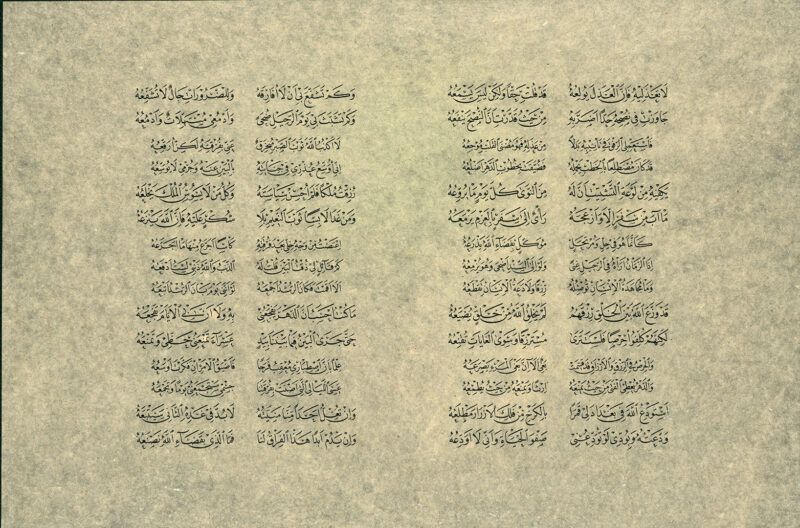 لا تعذليه فإن العذل يولعه قد قلت حقا ولكن ليس يسمعه
جاوزت في نصحه حدا أضر به من حيث قدرت أن النصح ينفعه
فاستعملي الرفق في تأنيبه بدلا من عذله فهو مضنى القلب موجعه
قد كان مضطلعا بالخطب يحمله فضيقت بخطوب الدهر أضلعه
يكفيه من لوعة التشتيت أن له من النوى كل يوم ما يروعه
ما آب من سفر إلا وأزعجه رأي إلى سفر بالعزم يزمعه
كأنما هو في حل ومرتحل موكل بقضاء الله يذرعه
إذا الزمان أراه في الرحيل غنى ولو إلى السند أضحى وهو يزمعه
وما مجاهدة الإنسان توصله رزقا ولا دعة الإنسان تقطعه
قد وزع الله بين الخلق رزقهم لم يخلق الله من خلق يضيعه
لكنهم كلفوا حرصا فلست ترى مسترزقا وسوى الغايات تقنعه
والحرص في الرزق والأرزاق قد قسمت بغي ألا إن بغي المرء يصرعه
والدهر يعطي الفتى من حيث يمنعه إرثا ويمنعه من حيث يطمعه
أستودع الله في بغداد لي قمرا بالكرخ من فلك الأزرار مطلعه
ودعته وبودي لو يودعني صفو الحياة وأني لا أودعه
وكم تشفع بي أن لا أفارقه وللضرورات حال لا تشفعه
وكم تشبث بي يوم الرحيل ضحى وأدمعي مستهلات وأدمعه
لا أكذب الله ثوب الصبر منخرق عني بفرقته لكن أرقعه
إني أوسع عذري في جنايته بالبين عنه وجرمي لا يوسعه
رزقت ملكا فلم أحسن سياسته وكل من لا يسوس الملك يخلعه
ومن غدا لابسا ثوب النعيم بلا شكر عليه فإن الله ينزعه
اعتضت من وجه خلي بعد فرقته كأسا أجرع منها ما أجرعه
كم قائل لي ذقت البين قلت له الذنب والله ذنبي لست أدفعه
ألا أقمت فكان الرشد أجمعه لو أنني يوم بان الرشد أتبعه
ما كنت أحسب أن الدهر يفجعني به ولا أن بي الأيام تفجعه
حتى جرى البين فيما بيننا بيد عسراء تمنعني حظي وتمنعه
علما بأن اصطباري معقب فرجا فأضيق الأمر إن فكرت أوسعه
عسى الليالي التي أضنت بفرقتنا جسمي ستجمعني يوما وتجمعه
وإن تغل أحدا منا منيته لا بد في غده الثاني سيتبعه
وإن يدم أبدا هذا الفراق لنا فما الذي بقضاء الله نصنعه